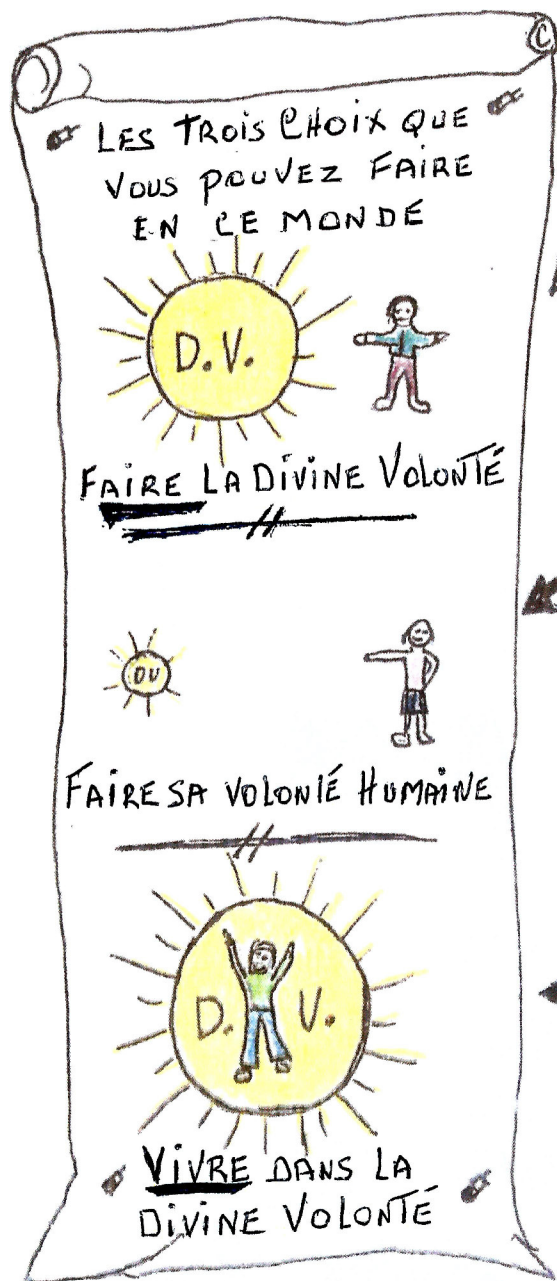 C
LES TROIS CHOIX QUE
VOUS POUVEZ FAIRE
EN CE MONDE
D.V.
FAIRE LA DIVINE VOLONTÉ
DV
FAIRE SA VOLONTÉ HUMAINE
D. V.
VIVRE DANS LA
DIVINE VOLONTÉ